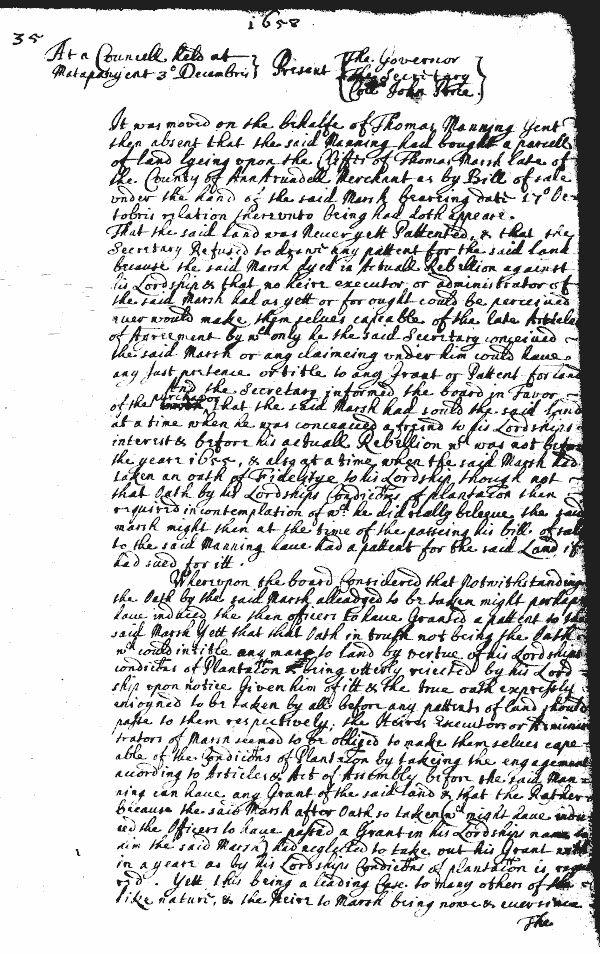 1658
35
At a Councell held at } Present { The Governor
Matapanyent 3o Decembris } { The Secretary
{ Coll John Price
It was moved on the behalfe of Thomas Manning Gent
then absent that the said Manning had bought a parcell
of land lyeing upon the Clifts of Thomas Marsh late of
the County of Ann Arundell Merchant as by Bill of sale
vnder the hand of the said Marsh bearing date 17o Oc
tobris relation therevnto being had doth appeare.
That the said land was Never yett Pattented, & that the
Secretary Refused to drawe any pattent for the said land
because the said Marsh dyed in Actuall Rebellion against
his Lordship & that no heire executor or administrator of
the said Marsh had as yett or for ought could be perceived
ever would make themselves capeable of the late Articles
of Agreement by wch only he the said Secretary conceived
the said Marsh or any claimeing vnder him could have
any just pretence or title to any Grant or Pattent for land
And the Secretary informed the board in favor
of the purchasor that the said Marsh had sould the said land
at a time when he was conceaved a frend to his Lordships
interest & before his actuall Rebellion wch was not before
the yeare 1655, & also at a time when the said Marsh had
taken an oath of Fidelitye to his Lordship though not
that Oath by his Lordships Condicons of plantacon then
required in contemplation of wch he did really beleeve the said
marsh might then at the time of the passeing his bill of sale
to the said Manning have had a pattent for the said Land if
had sued for itt.
Wherevpon the board Considered that Notwithstanding
the Oath by the said Marsh alleadged to be taken might perhaps
have induced the then officers to have Granted a pattent to the
said Marsh Yett that that Oath in truth not being the Oath
wch could intitle any man to land by vertue of his Lordships
condicons of Plantacon & being vtterly rejected by his Lord
ship vpon notice Given him of itt & the true oath expressly
enioyned to be taken by all before any pattents of land should
passe to them respectively, the Heires Executors or Adminis
trators of Marsh seemed to be obliged to make themselves cape
able of the Condicons of Plantacon by takeing the engagement
according to Articles & Act of Assembly before the said Man
ning can have any Grant of the said land & that the Rather
because the said Marsh after Oath so taken wch might have indu
ced the Officers to have passed a Grant in his Lordships name to
him the said Marsh had neglected to take out his Grant
in a yeare as by his Lordships Condicons of plantacon is
Yett this being a leading Case to many others of the
like nature, & the Heire to Marsh being nowe & ever since
The